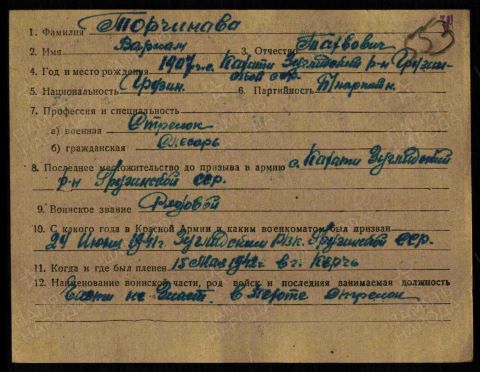 1. Фамилия Торчинава
2. Имя Варлам 3. Отчество Тарвович
4. Год и место рождения 1907 г. с. Кахати Зугдидский р-н Грузин-
ской сср.
5. Национальность Грузин. 6. Партийность
7. Профессия и специальность
а) военная Стрелок
б) гражданская Слесарь
8. Последнее местожительство до призыва в армию с. Кахати Зугдидский
р-н Грузинской сср.
9. Воинское звание Рядовой
10. С какого года в Красной Армии и каким военкоматом был призван
24 1941г. Зугдидским РВК. Грузинской сср.
11. Когда и где был пленен 15 Мая 1942г. в г. Керчь
12. Наименование воинской части, род войск и последняя занимаемая должность
не знает. в роте стрелок